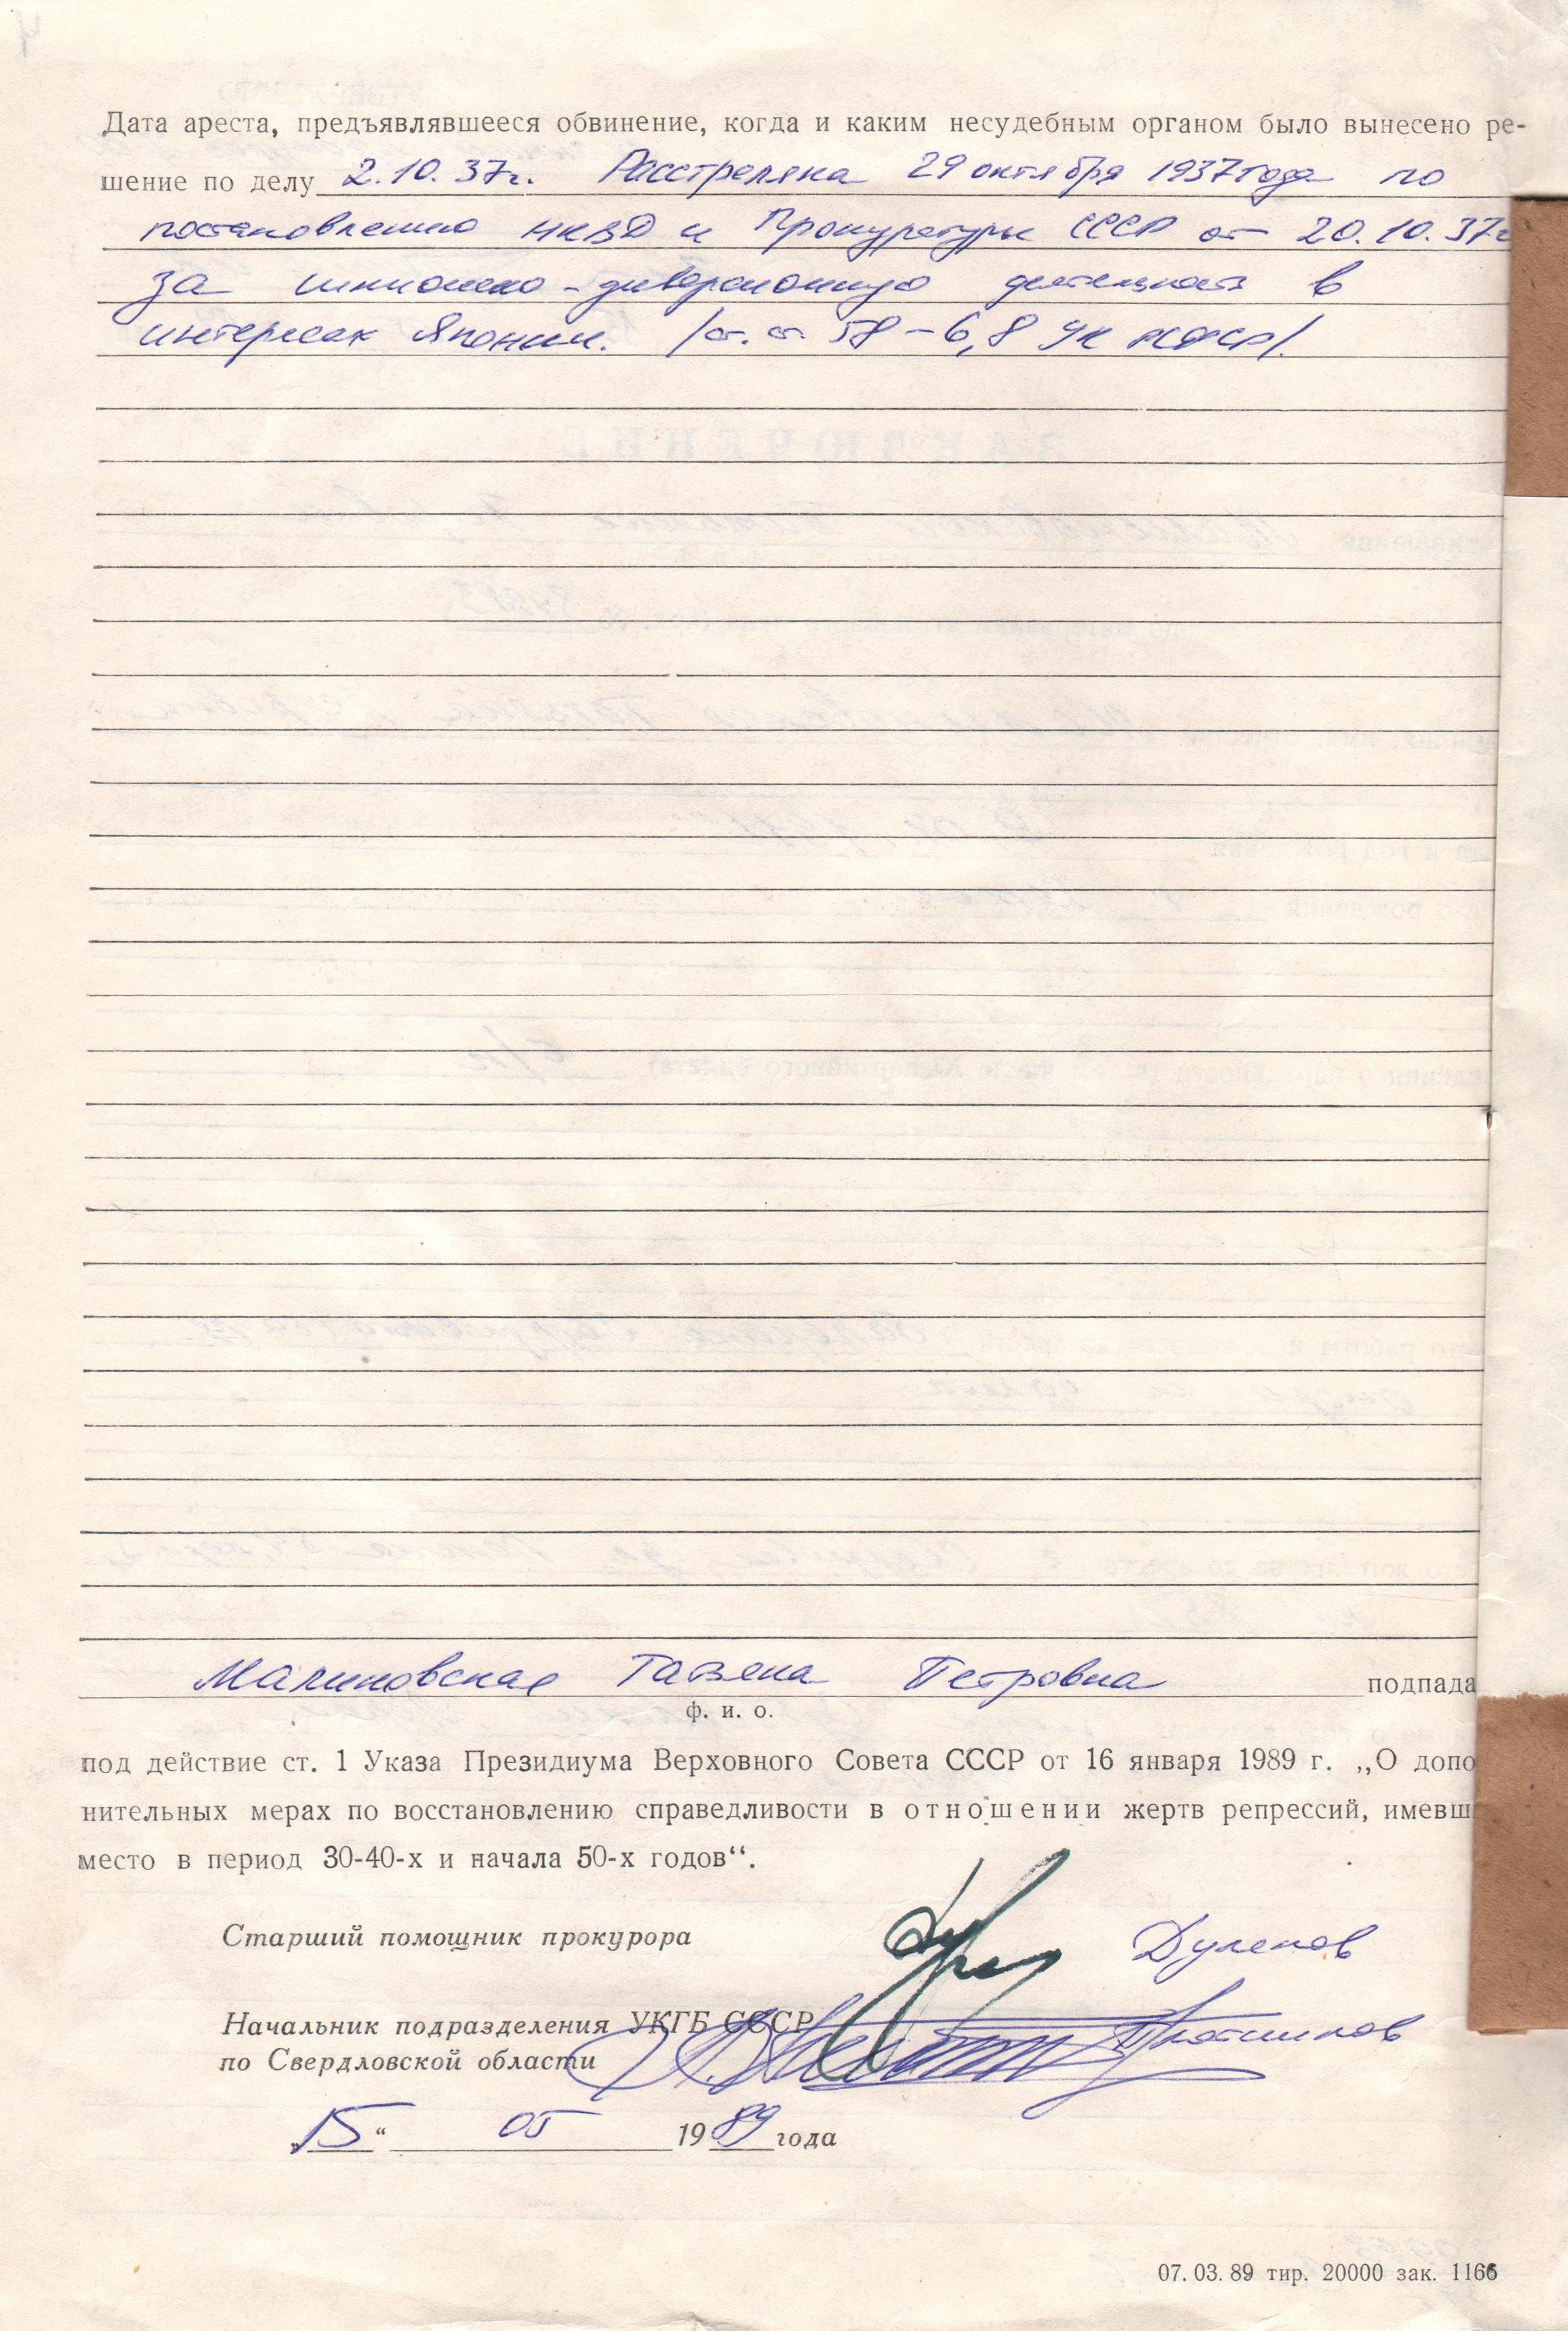 Дата ареста, предъявлявшееся обвинение, когда и каким несудебным органом было вынесено ре-
шение по делу 2.10.37г. Расстреляна 29 октября 1937 года по
постановлению НКВД и Прокуратуры СССР от 20.10.37г
за шпионско-диверсионную деятельность в
интересах Японии. /ст. ст. 58-6,8 УК РСФСР/.
Малиновская Татьяна Петровна подпада
ф. и. о.
под действие ст. 1 Указа Президиума Верховного Совета СССР от 16 января 1989 г. „О допо
нительных мерах по восстановлению справедливости в отношении жертв репрессий, имевш
место в период 30-40-х и начала 50-х годов“.
Старший помощник прокурора
Начальник подразделения УКГБ СССР
по Свердловской области
„15“ 05 1989 года
07.03.89 тир. 20000 зак. 1166